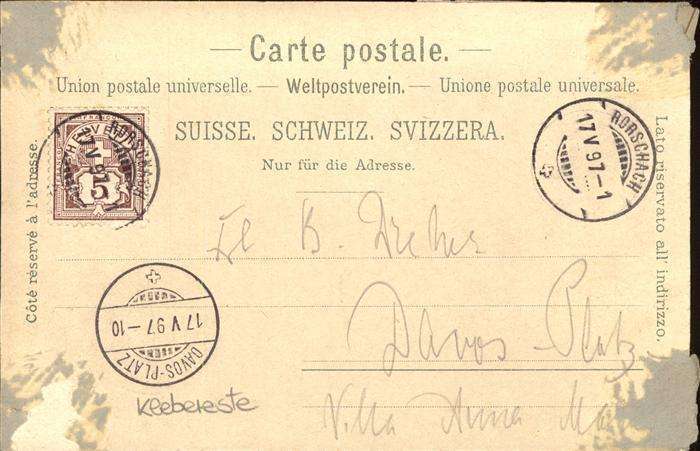 Carte postale.
Union postale universelle. — Weltpostverein. — Unione postale universale.
SUISSE. SCHWEIZ. SVIZZERA.
Nur für die Adresse.
Côté réservé à l'adresse.
Lato riservato all' indirizzo.
FRANCO
HELVETIA
5
RORSCHACH
17 V 97
RORSCHACH
17 V 97-1
B.
Davos-Platz
Villa Anna
17 V 97-10
DAVOS-PLATZ
Klebereste